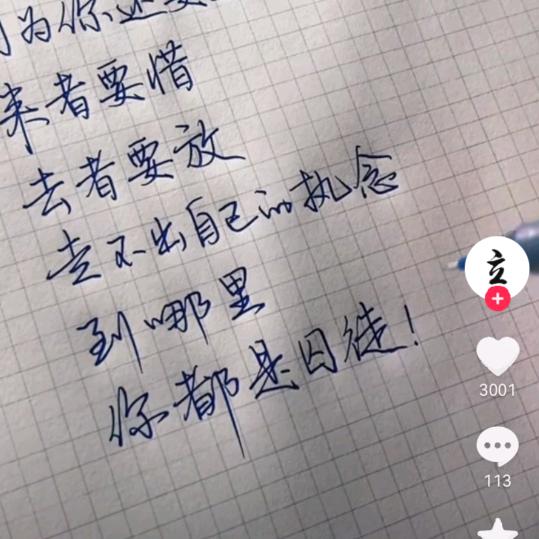 为你还
来者要惜
去者要放
走不出自己的执念
到哪里
你都是日徒!
立
3001
113